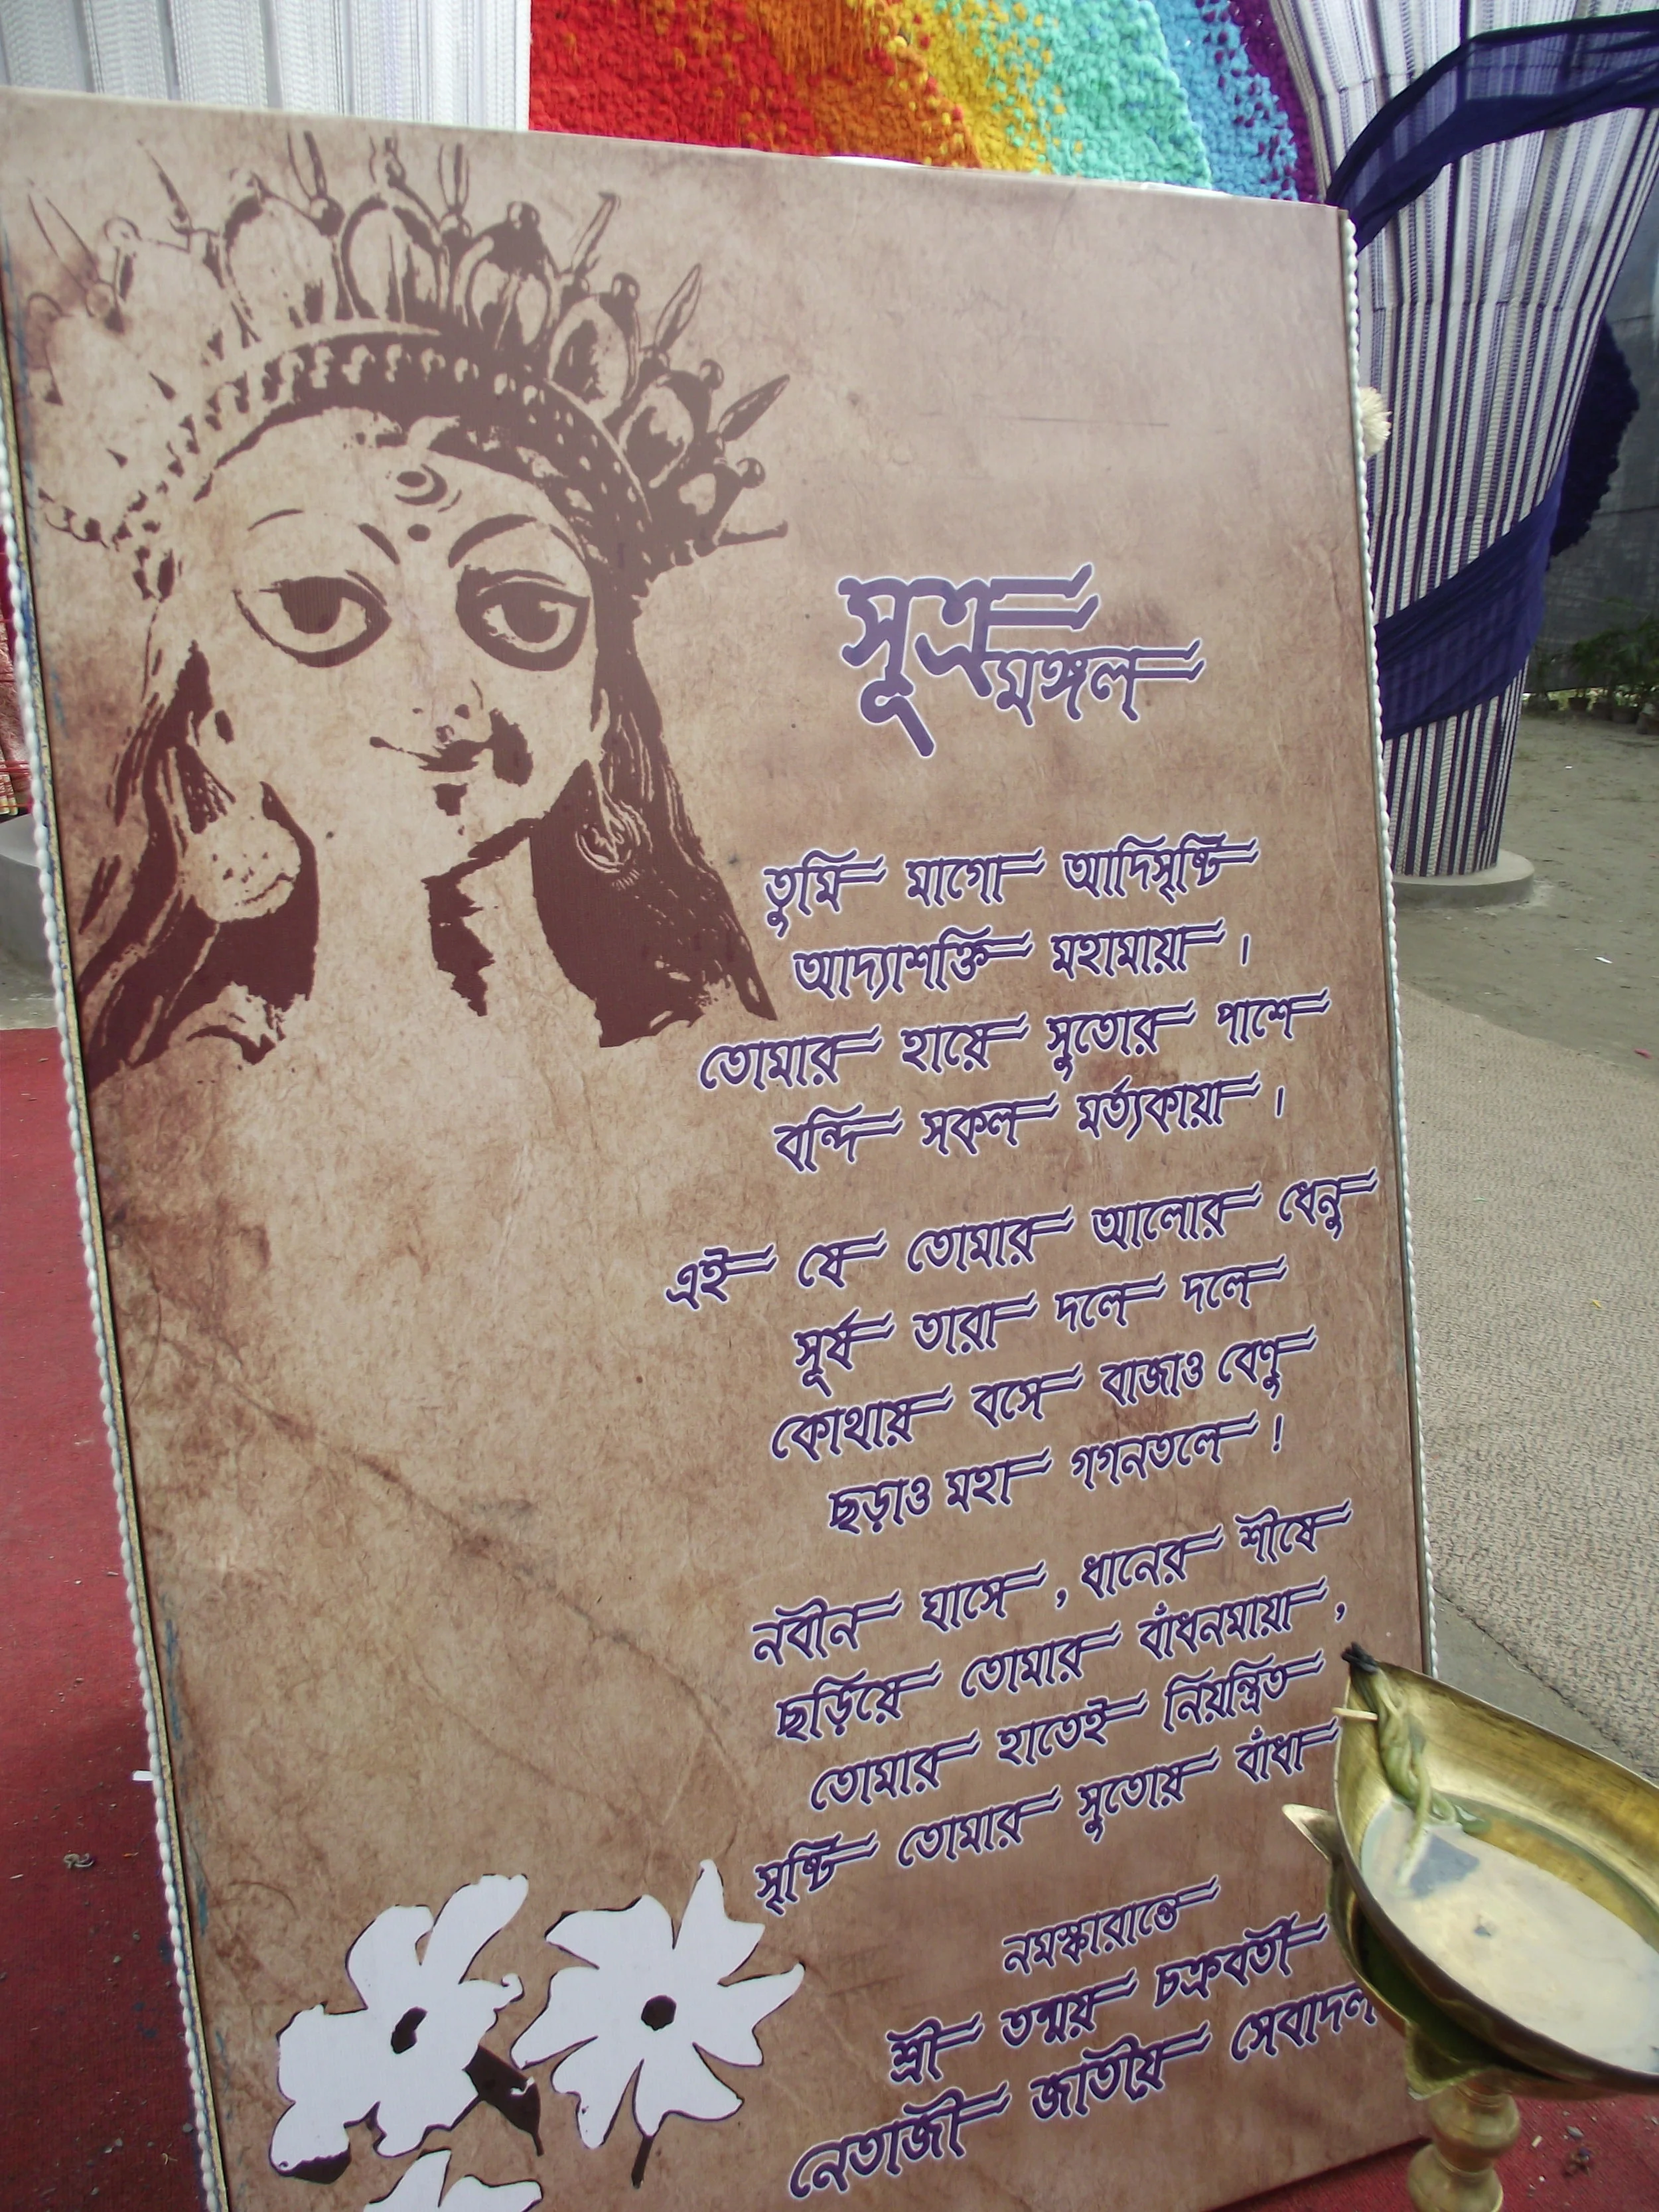 সূত্র
মঙ্গল
তুমি মাগো আদিসৃষ্টি
আদ্যাশক্তি মহামায়া ।
তোমার হায়ে সুতোর পাশে
বন্দি সকল মর্ত্যকায়া ।
এই যে তোমার আলোর ধেনু
সূর্য তারা দলে দলে
কোথায় বসে বাজাও বেণু
ছড়াও মহা গগনতলে !
নবীন ঘাসে , ধানের শীষে
ছড়িয়ে তোমার বাঁধনমায়া ,
তোমার হাতেই নিয়ন্ত্রিত
সৃষ্টি তোমার সুতোয় বাঁধা
নমস্কারান্তে
শ্রী তন্ময় চক্রবর্তী
নেতাজী জাতীয় সেবাদল